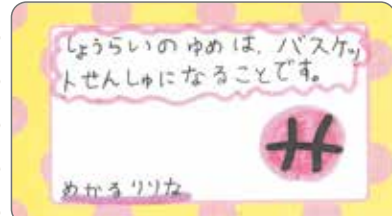 しょうらいのゆめは、バスケッ
トせんしゅになることです。
めかるりりな